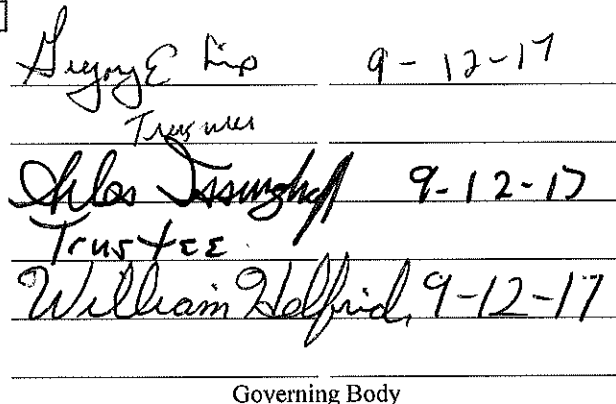 Gregory E 9-12-17
Treasurer
9-12-17
Trustee
William Helfrich, 9-12-17
Governing Body